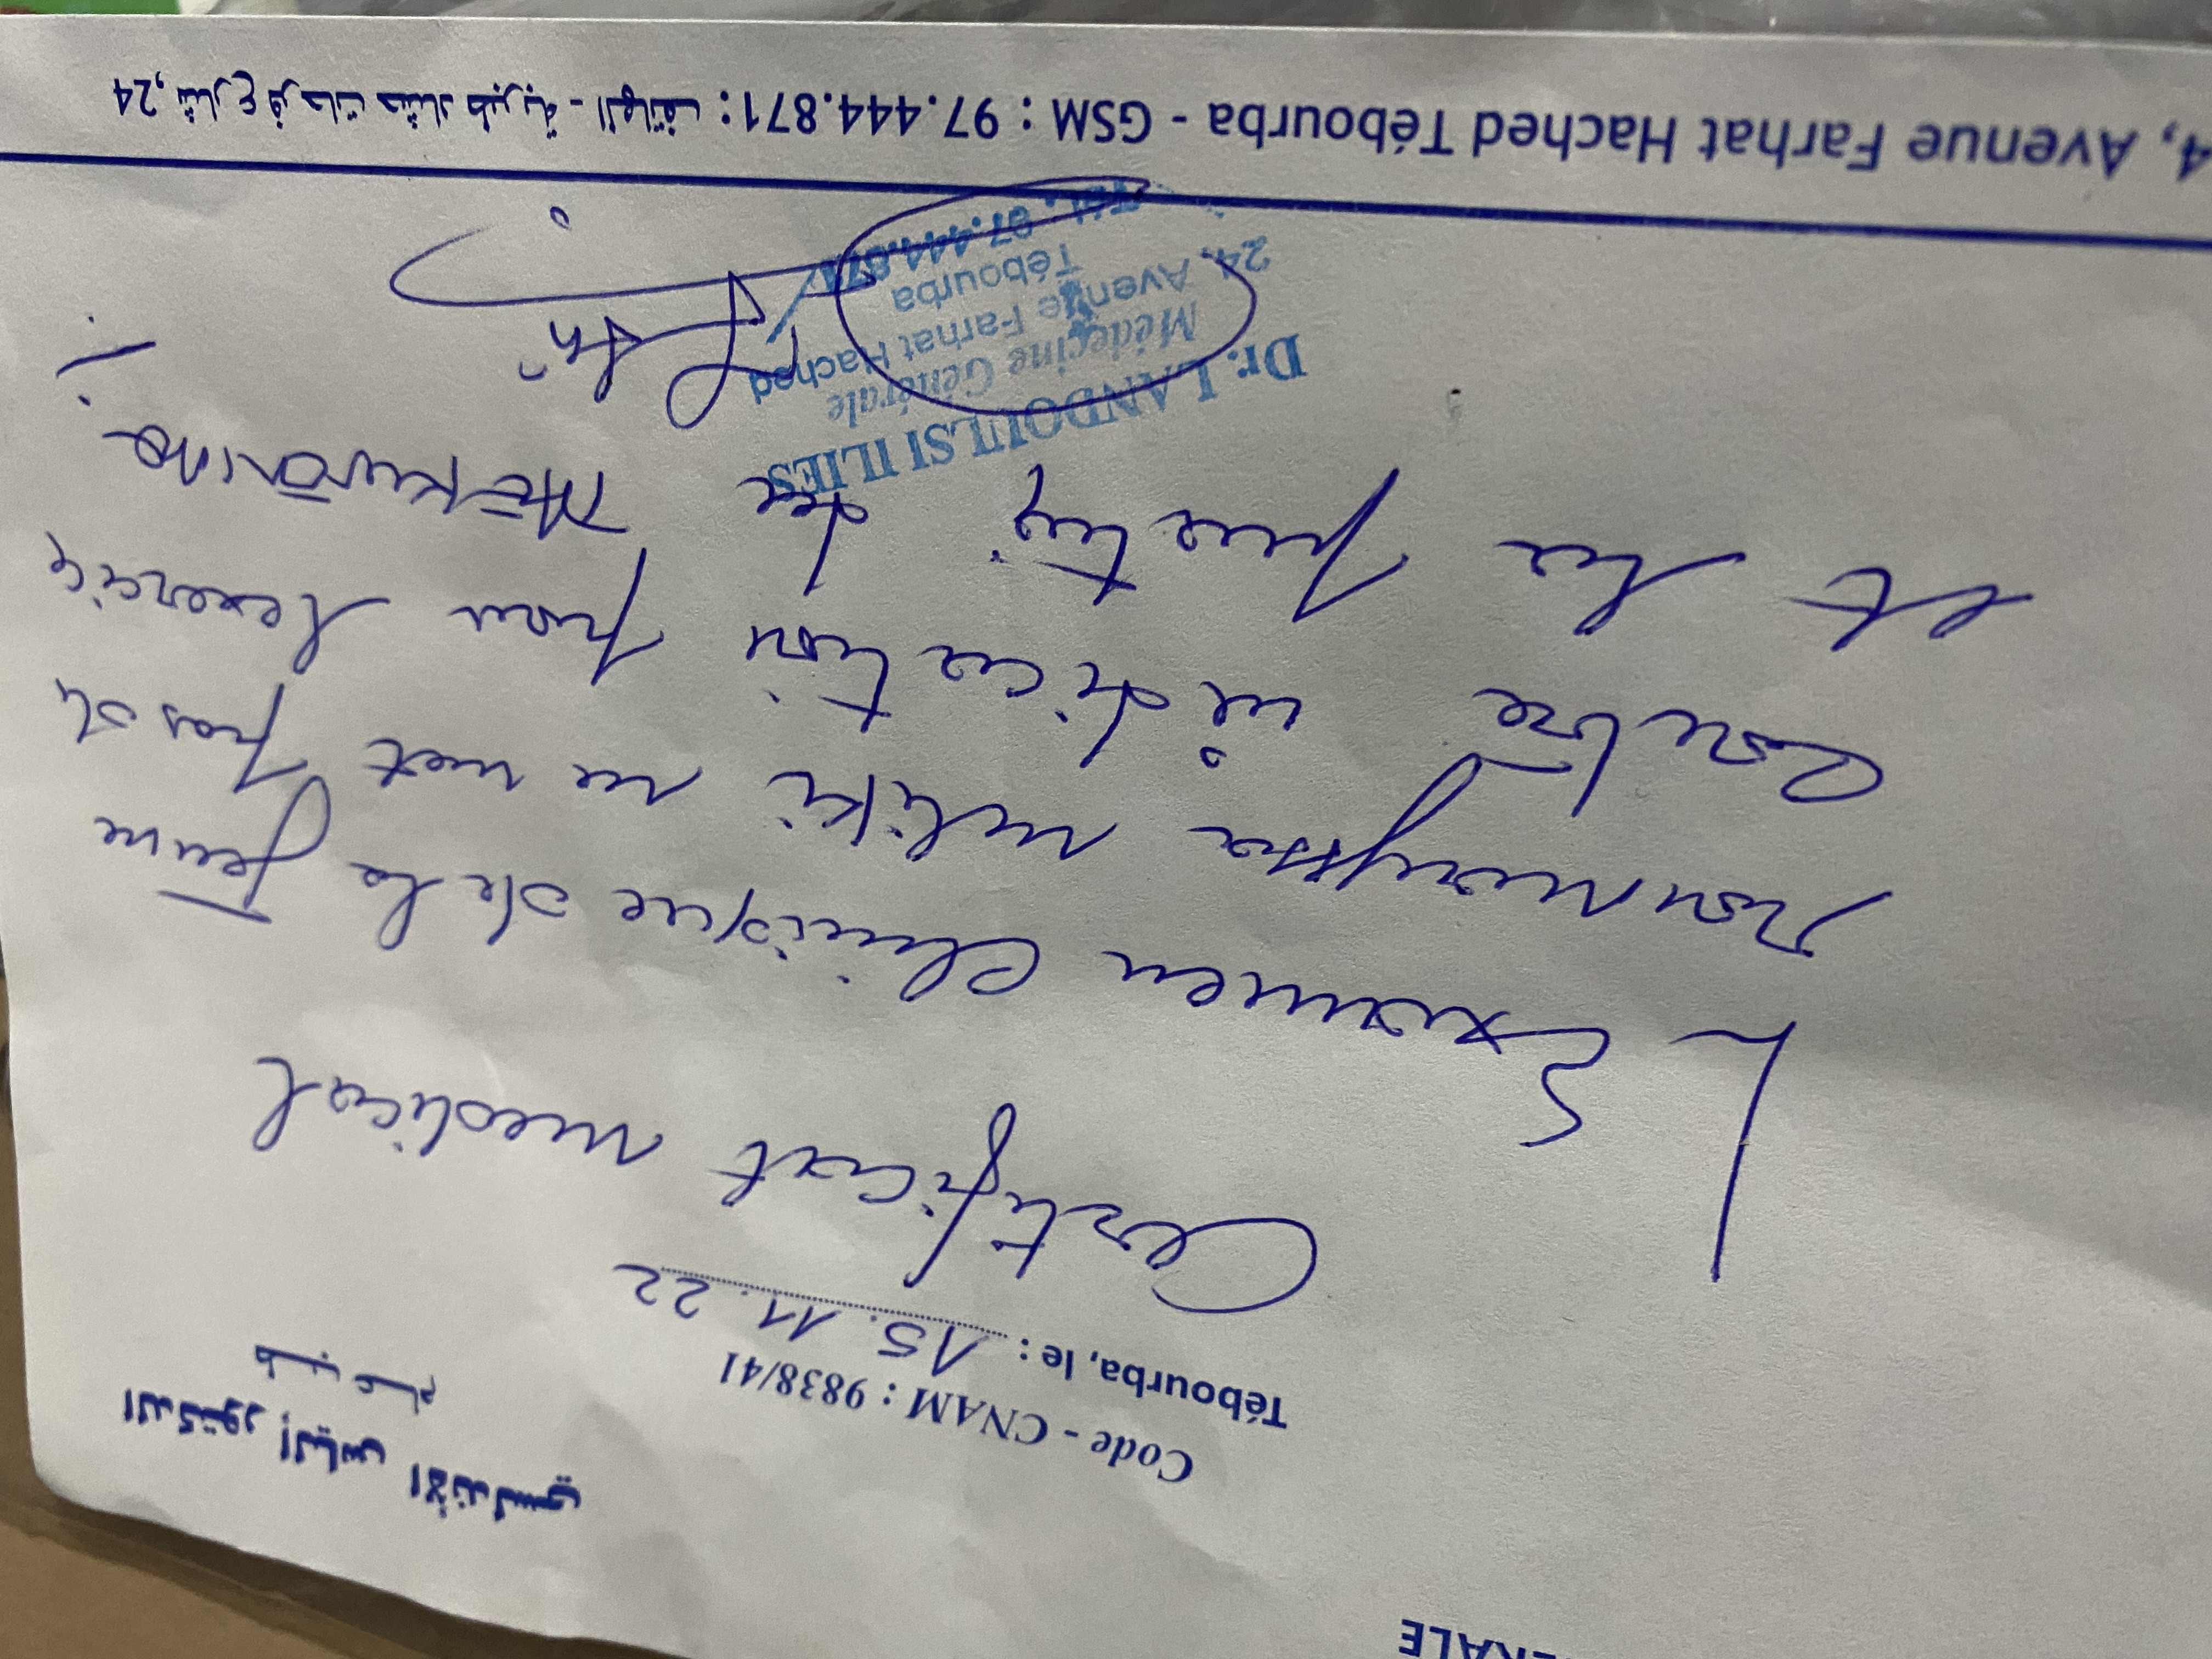 ERALE
الدكتور إلياس الأندلسي
طبيب عام
Code - CNAM : 9838/41
Tébourba, le : 15. 11. 22
Certificat medical
L'Examen clinique de la jeune
meliki ne met pas de
contre indication pour lexercice
et la pratique du TAEKWONDO
Dr. LANDOULSI ILIES
Médecine Générale
24, Avenue Farhat Hached
Tébourba
Tél. 97.444.871
4, Avenue Farhat Hached Tébourba - GSM : 97.444.871 : الهاتف - 24, شارع فرحات حشاد طبربة